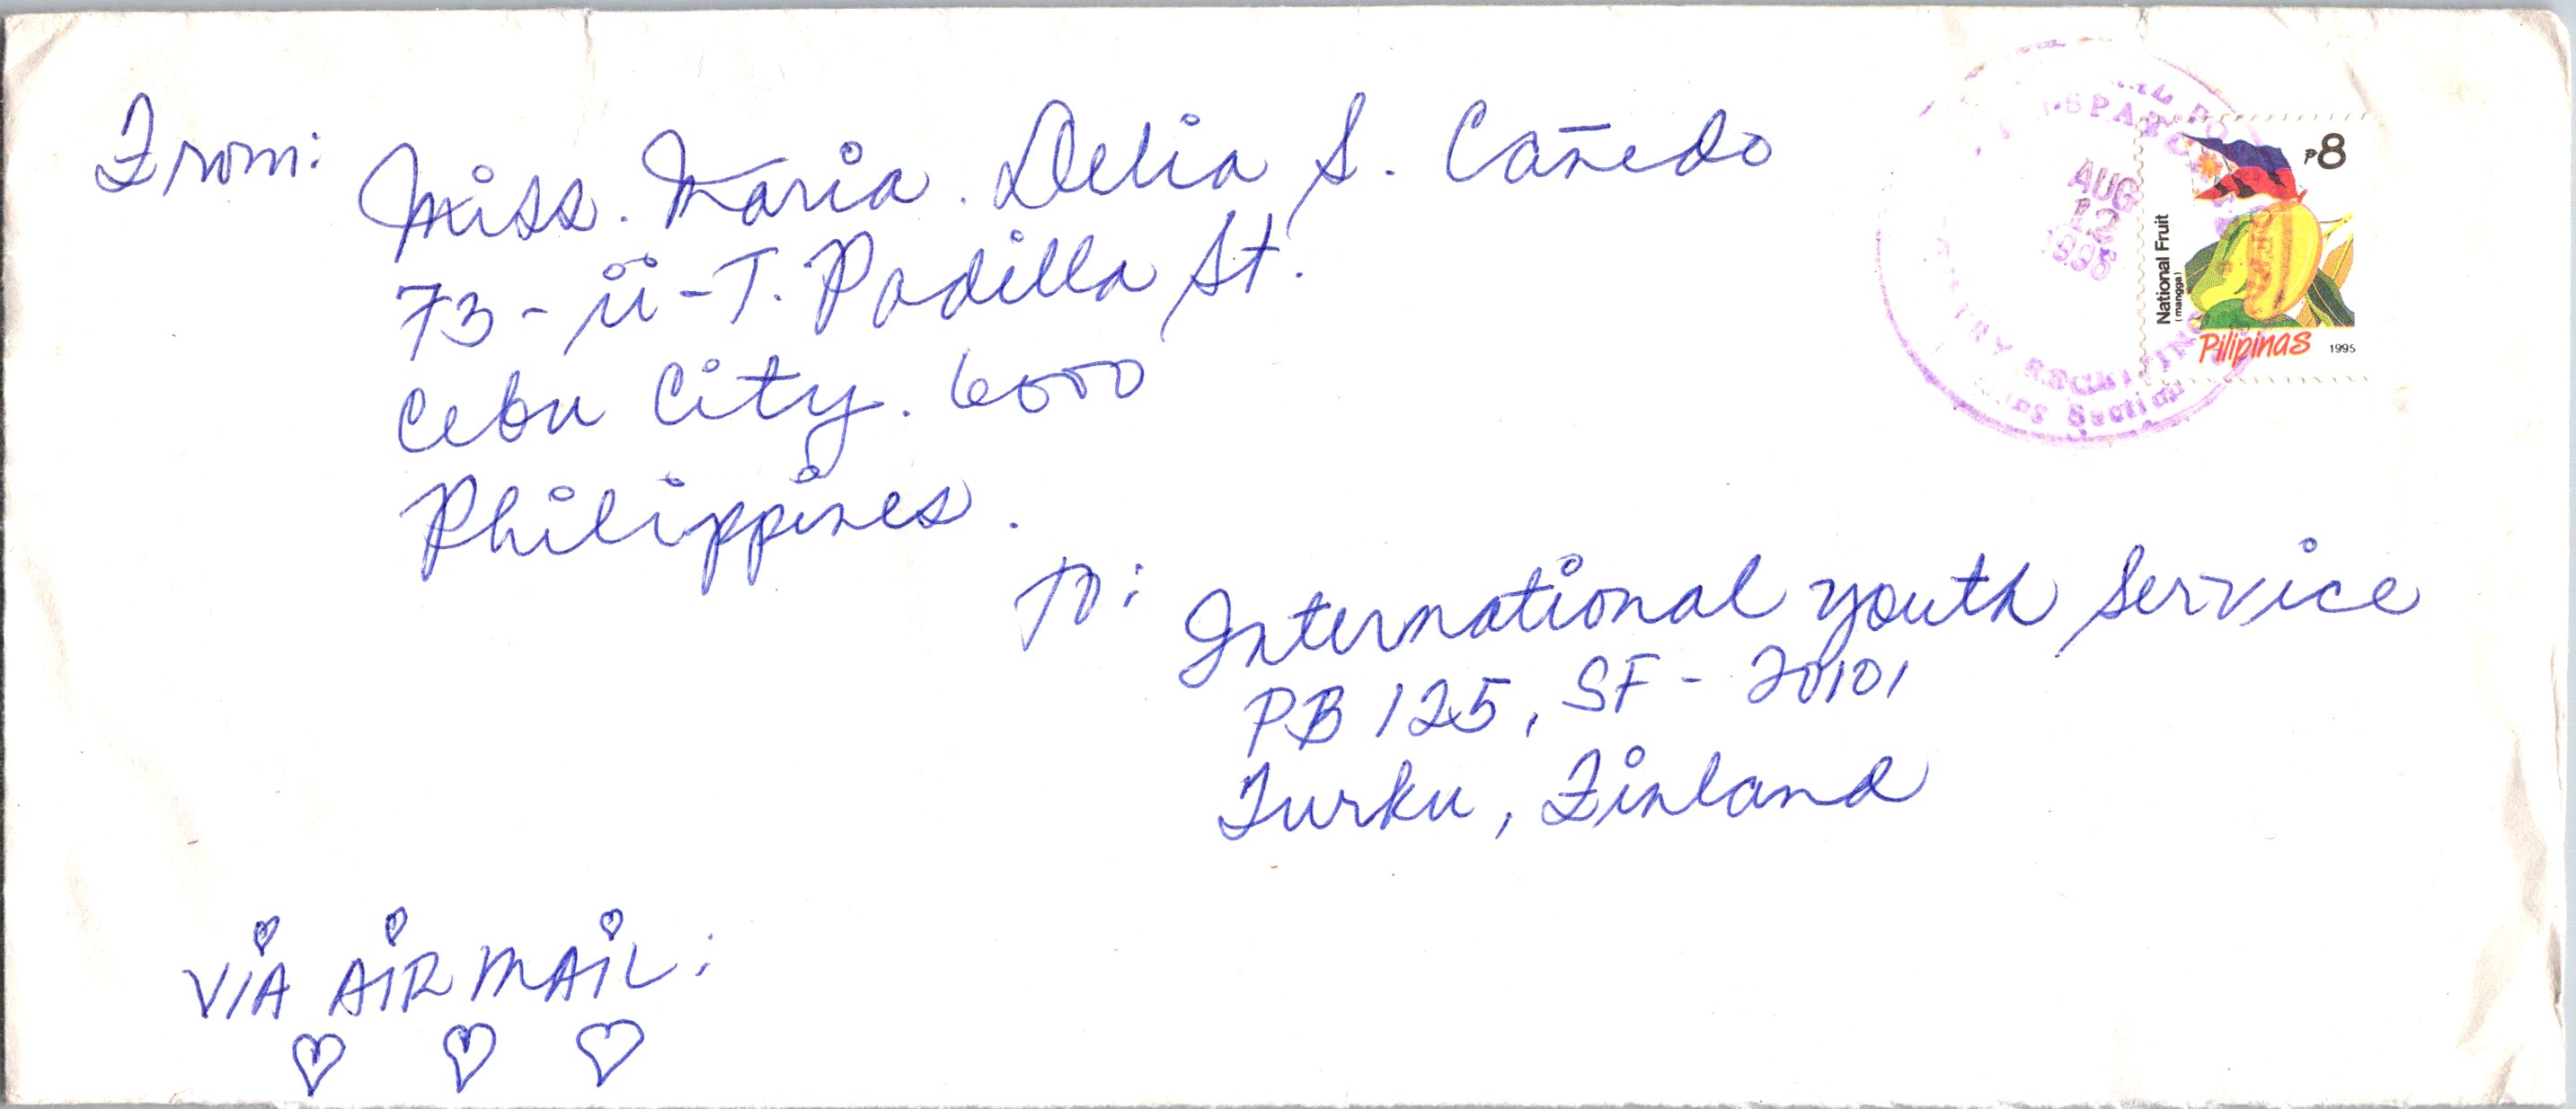 From:
Miss. Maria. Delia S. Cañedo
73-ii-T. Padilla St.
Cebu City. 6000
Philippines.
To:
International youth Service
PB 125, SF - 20101
Turku, Finland
VIA AIRMAIL:
AUG
12
₱8
National Fruit
(mangga)
Pilipinas 1995
Section